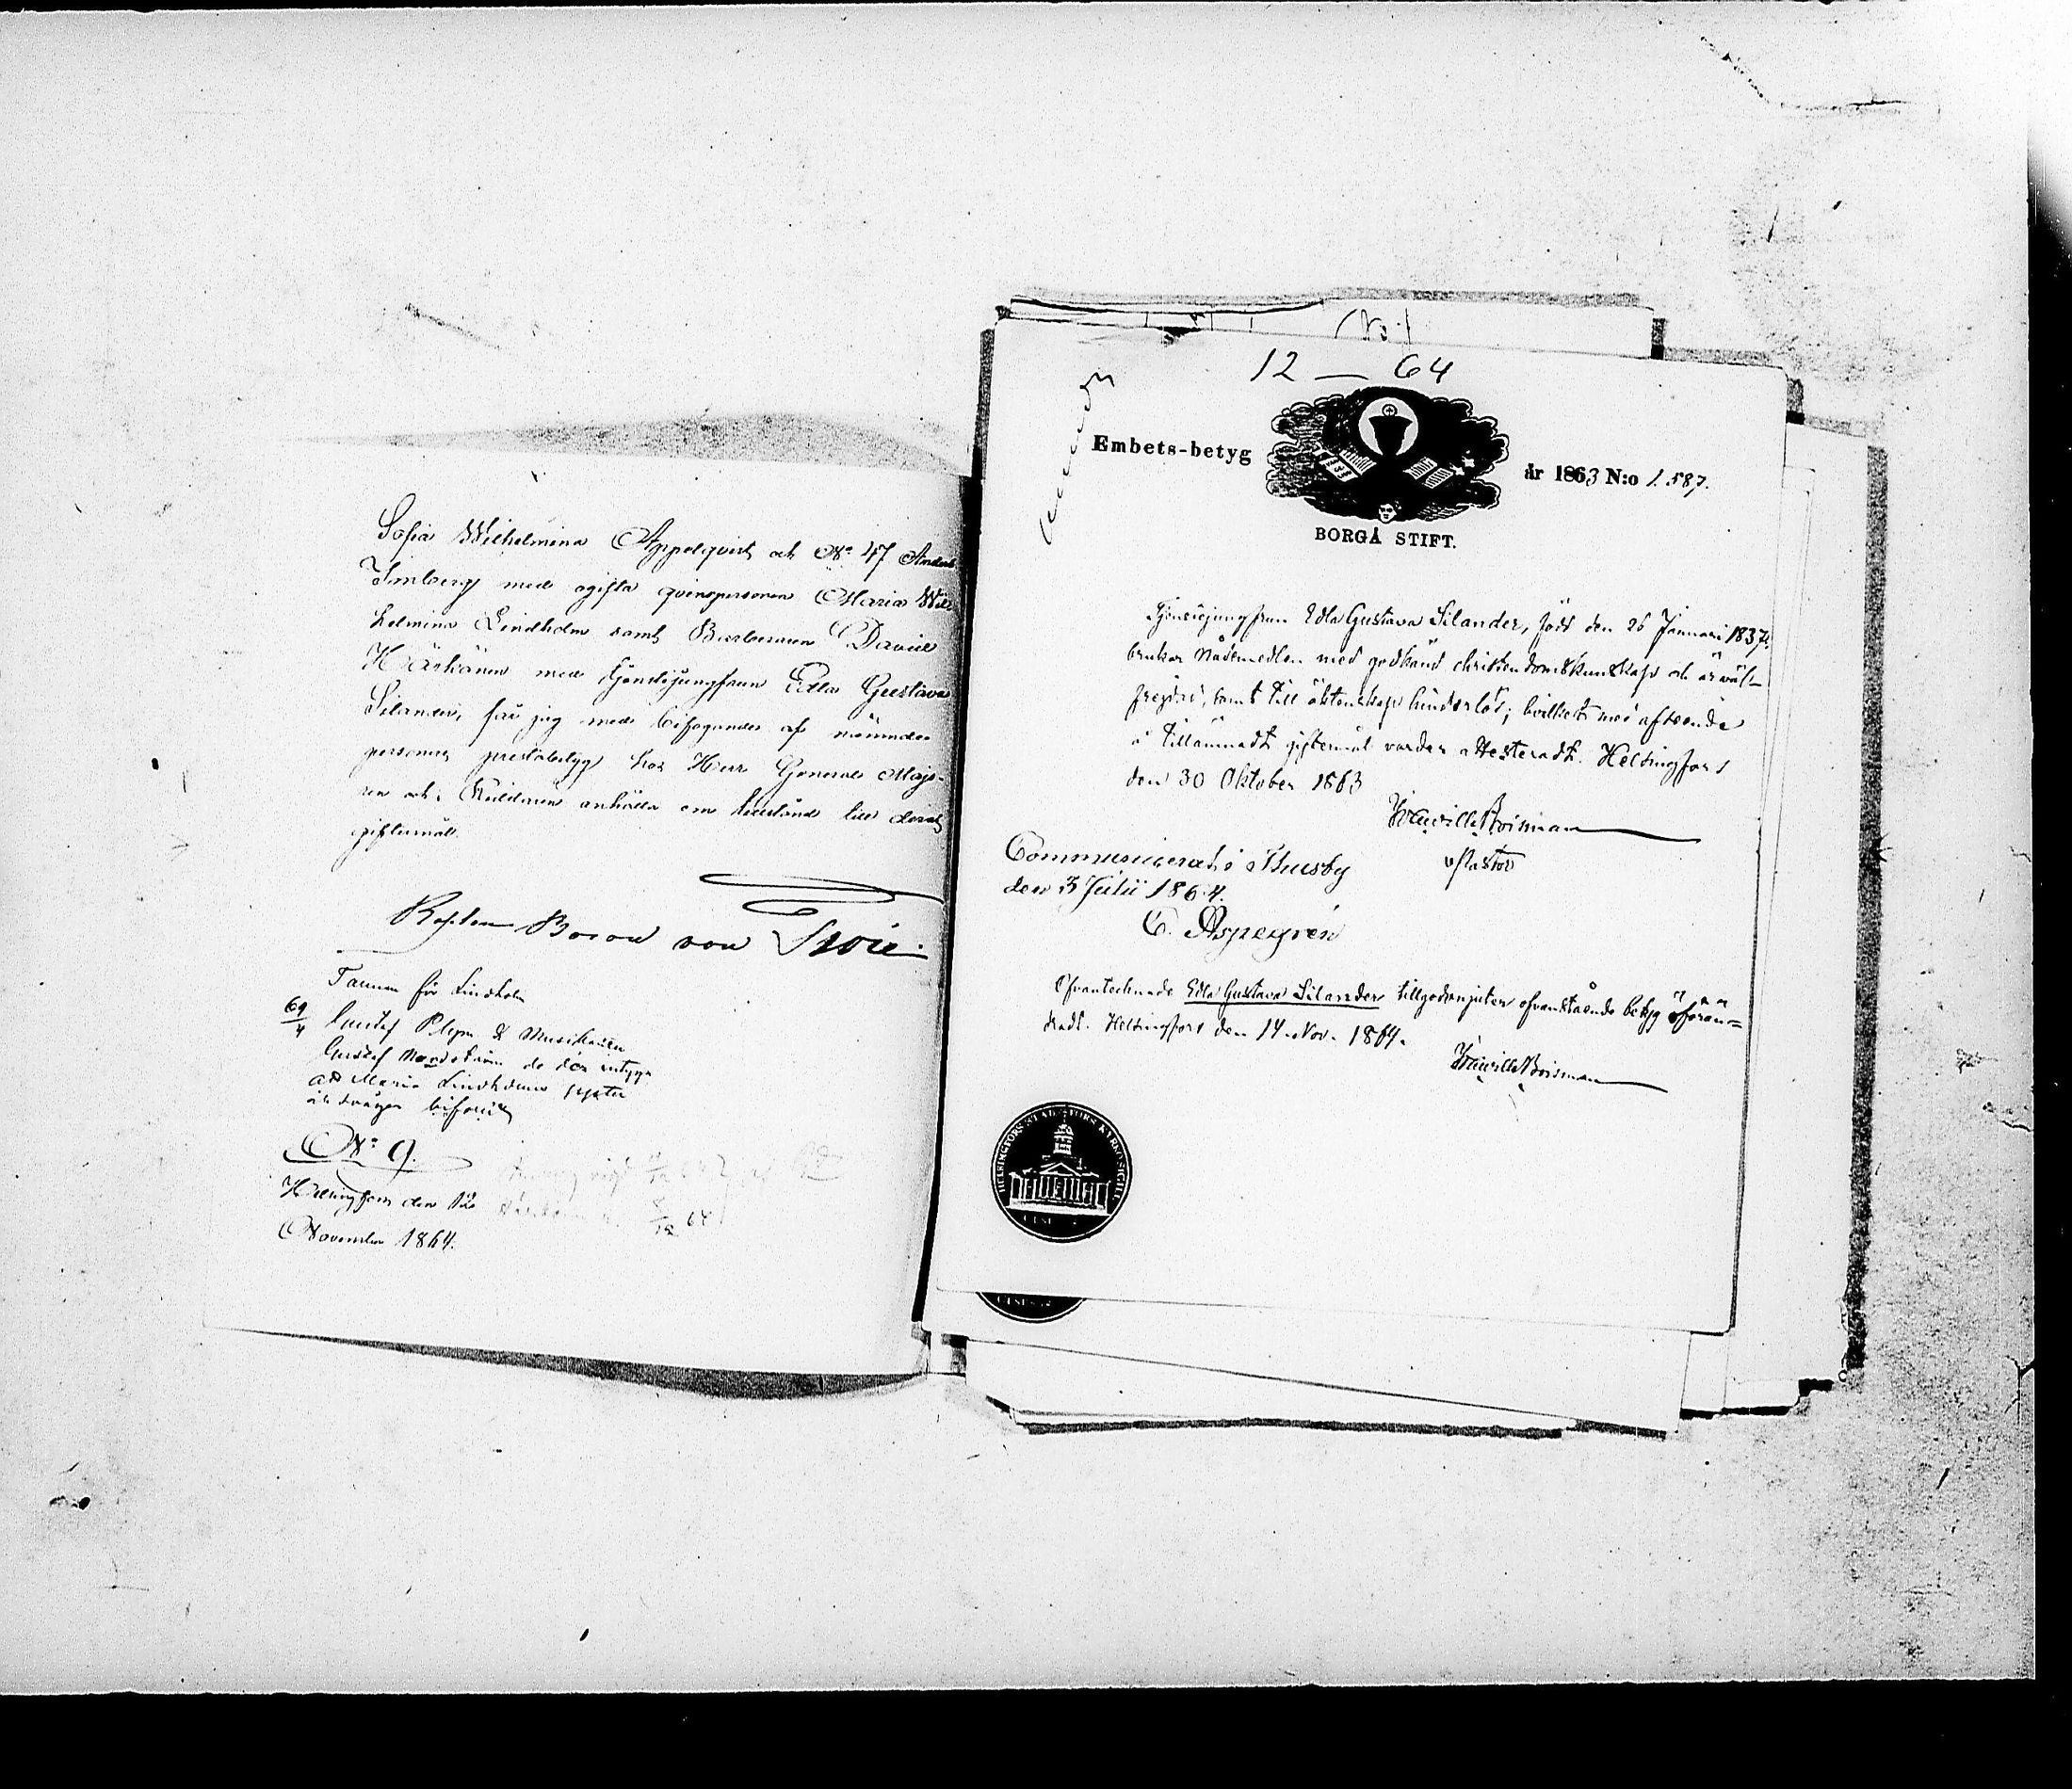 Sofia Wilhelmina Appelqvist och No 47 Anders
Imberg med ogifta qvinspersonen Maria Wil-
helmina Lindholm samt Barberaren David
Härkänen med tjenstejungfrun Edla Gustava
Silander, får jag med bifogandes af nämnde
personers prestabetyg hos Herr General Majo-
ren och Riddaren anhålla om tillstånd till deras
giftermål.
Kapten Baron von
för Lindholm
69/4 Gustaf & Musikanten
Gustaf Nordström do der intyga
att Maria Lindholms syster
och svåger bifalla
No 9.
Helsingfors den 12
November 1864.
12 — 64
Embets-betyg
år 1863 N:o 1.587.
BORGÅ STIFT.
Tjenstejungfrun Edla Gustava Silander, född den 26 Januari 1837,
brukar Nådemedlen med godkänd christendomskunskap och är väl-
frejdad, samt till äktenskap hinderlös; hvilket med afseende
å tillämnadt giftermål varder attesteradt. Helsingfors
den 30 Oktober 1863
Boisman
v Pastor
Communicerat i Thusby
den 3 Julii 1864.
C. Aspegrén
Ofvantecknade Edla Gustava Silander tillgodonjuter ofvanstående betyg oförän-
dradt. Helsingfors den 14 Nov. 1864.
Boisman
HELSINGFORS STADS FÖRS. KYRKO SIGILL